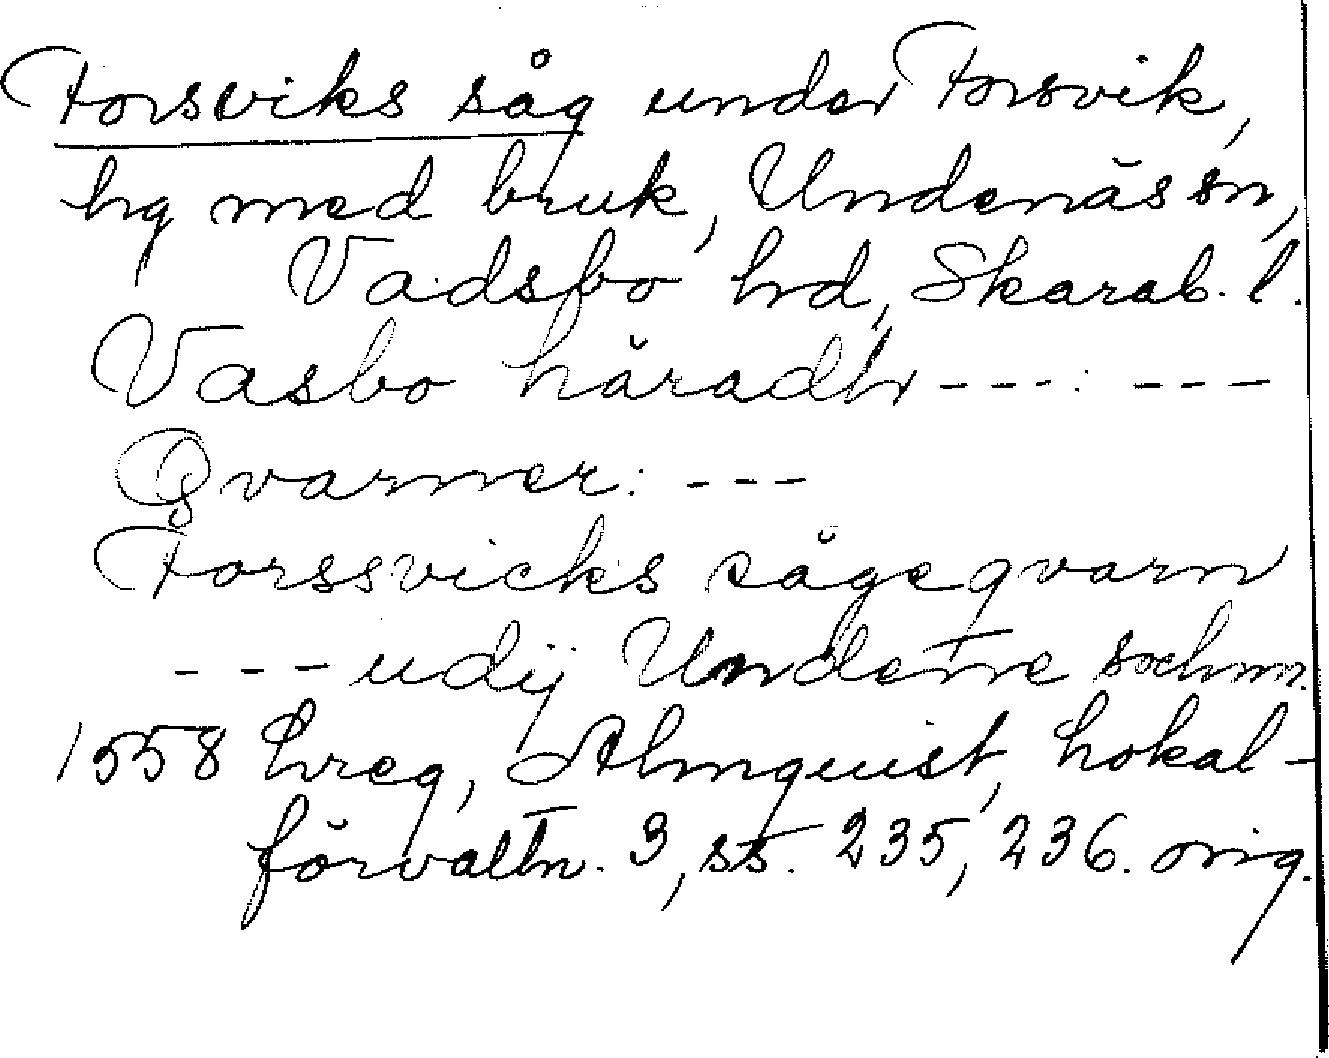 Forsviks såg under Forsvik,
hg med bruk, Undenäs sn,
Vadsbo hrd, Skarab. l.
Vasbo häradhr ---: ---
Qvarner: ---
Forssvicks sågeqvarn
--- udij Undene sochnn.
1558 hreg, Almquist, Lokal-
förvaltn. 3, ss. 235, 236. orig.